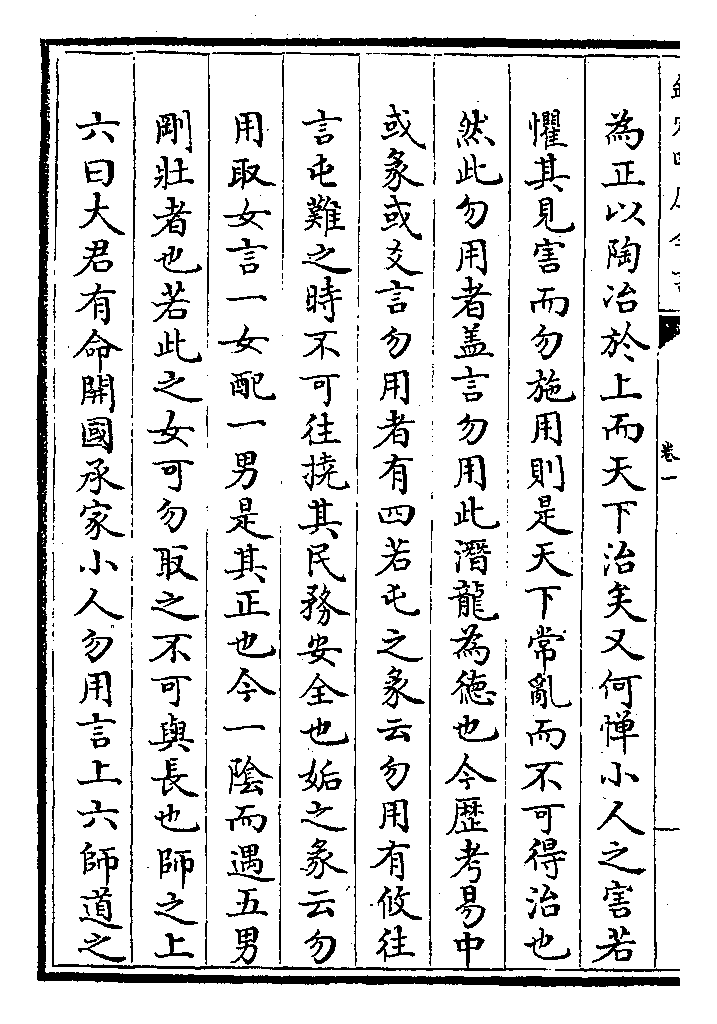 為正以陶冶於上而天下治矣又何憚小人之害若
懼其見害而勿施用則是天下常亂而不可得治也
然此勿用者盖言勿用此潛龍為德也今歴考易中
或彖或爻言勿用者有四若屯之彖云勿用有攸往
言屯難之時不可往撓其民務安全也姤之彖云勿
用取女言一女配一男是其正也今一陰而遇五男
剛壯者也若此之女可勿取之不可與長也師之上
六曰大君有命開國承家小人勿用言上六師道之
卷一